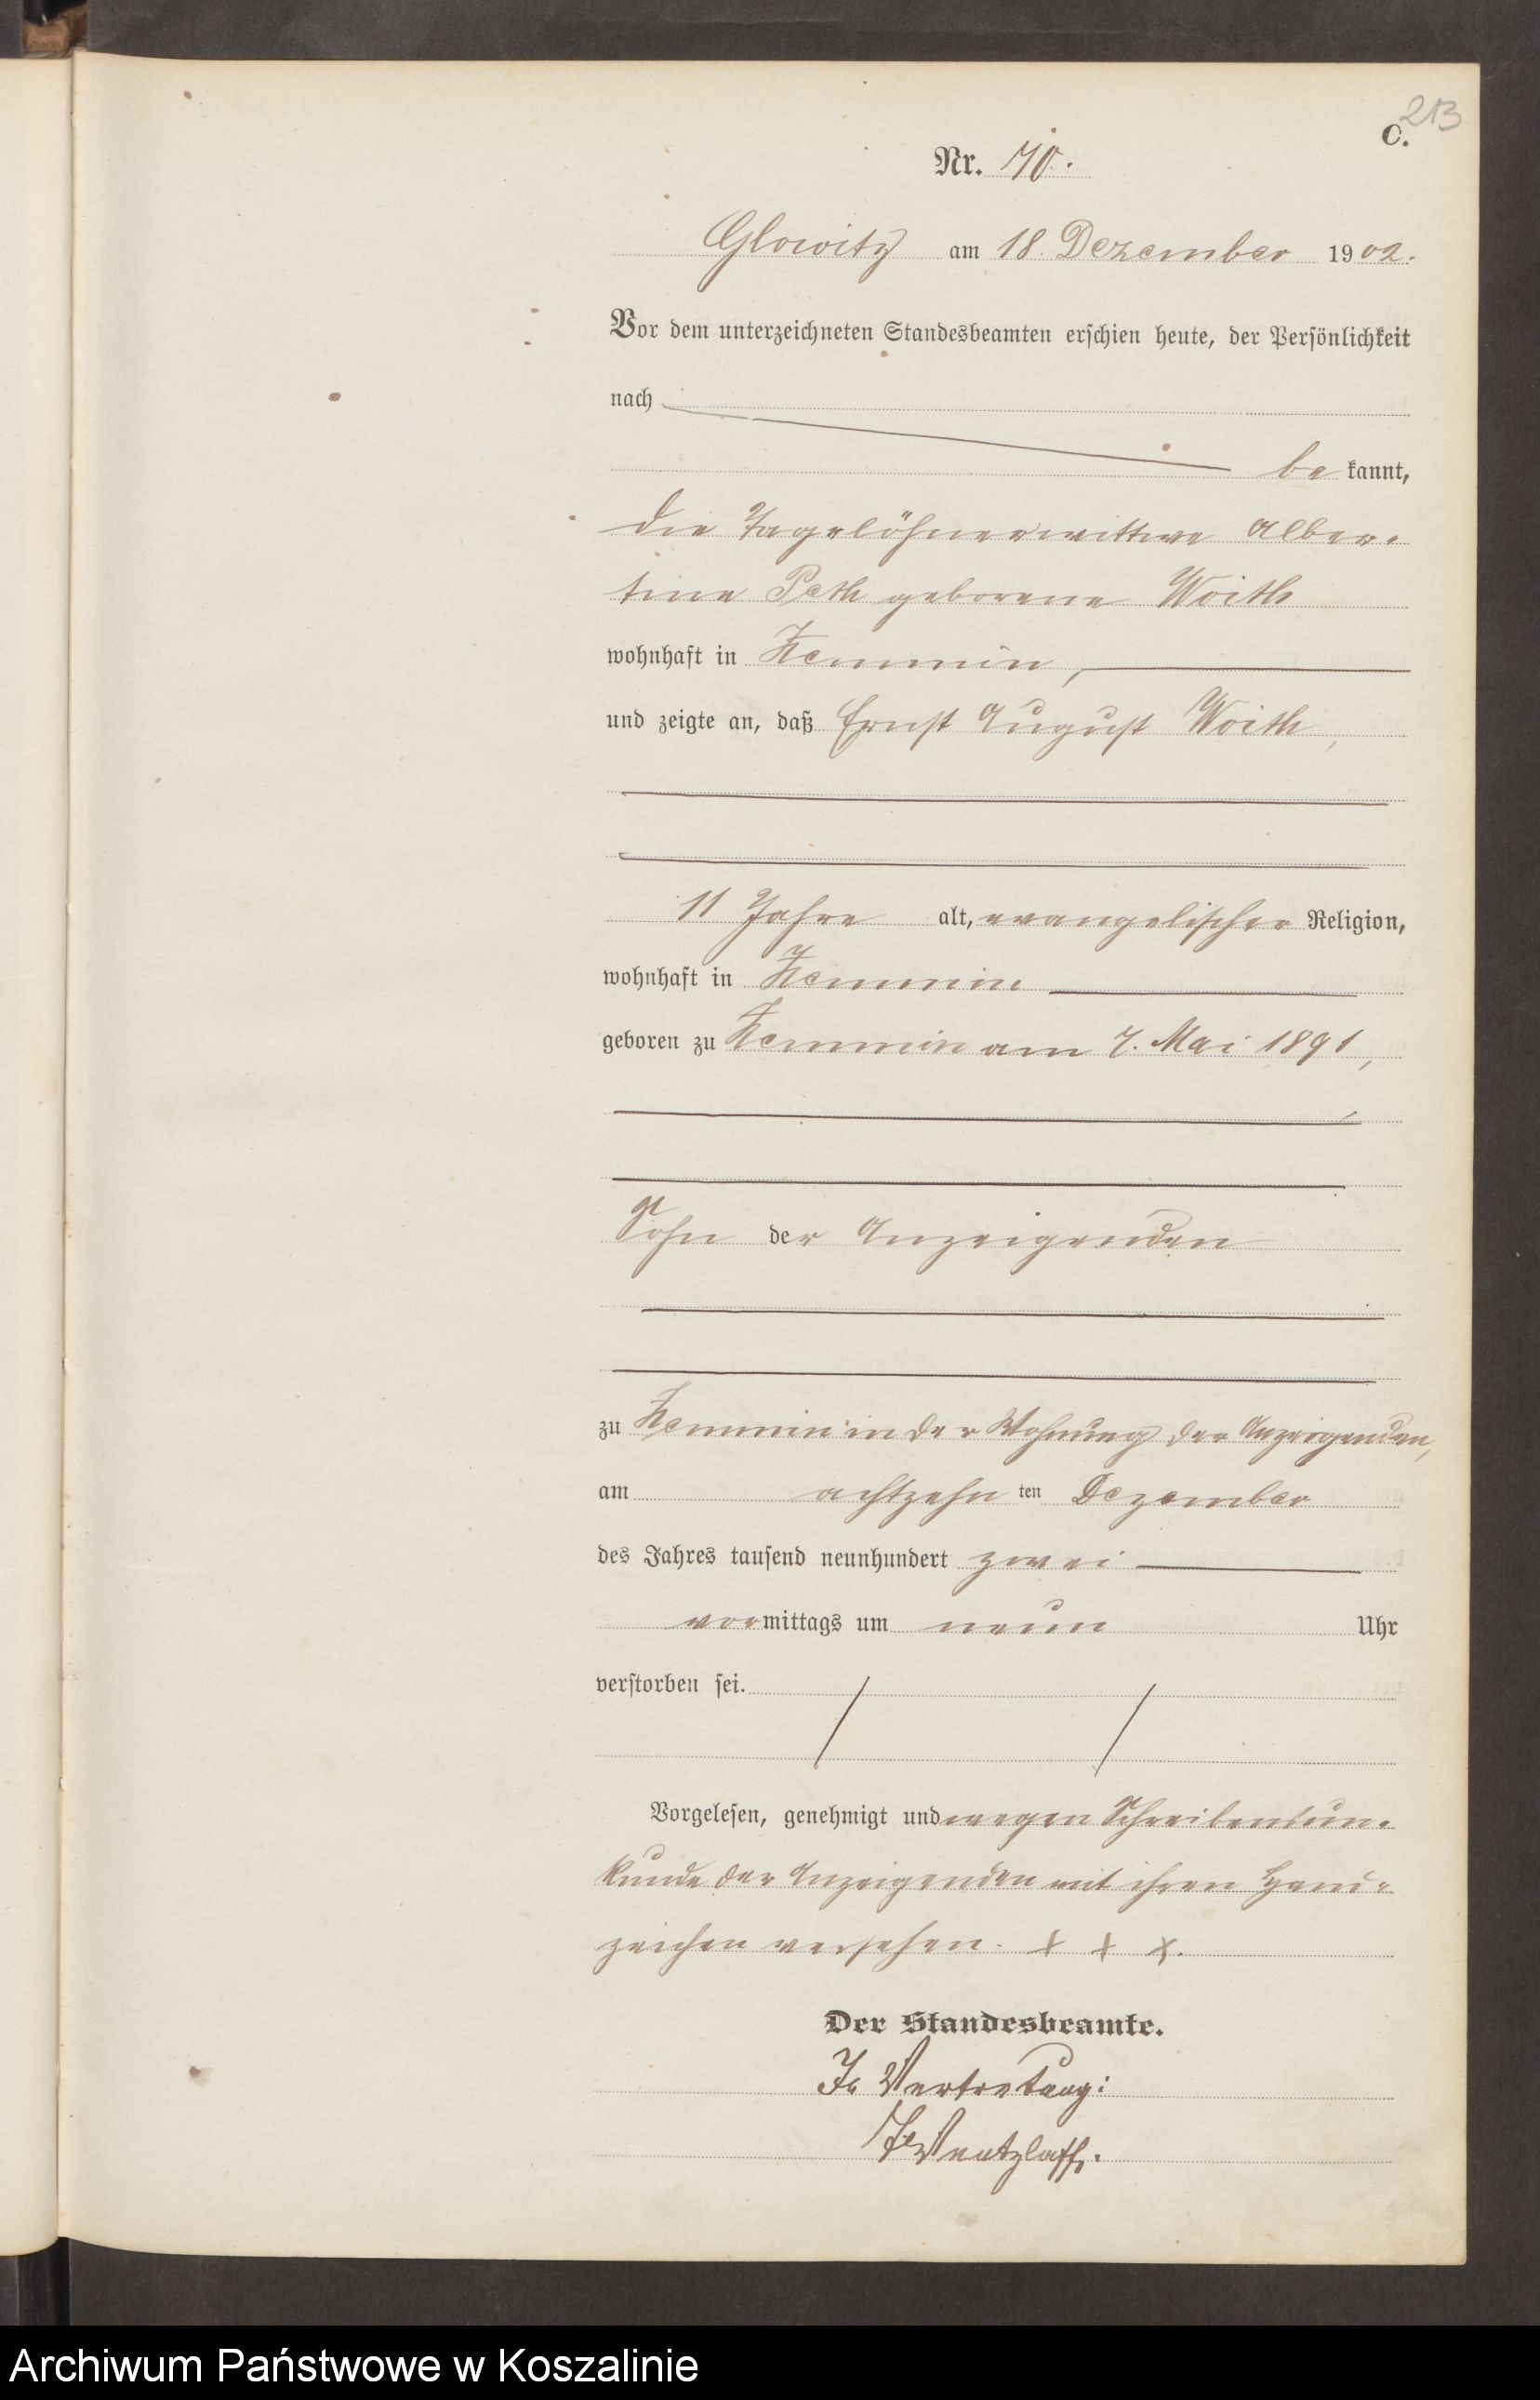 213
C.
Nr. 70.
Glowitz am 18. Dezember 1902.
Vor dem unterzeichneten Standesbeamten erschien heute, der Persönlichkeit
nach
be kannt,
die Tagelöhnerwittwe Alber-
tine Peth geborene Woith
wohnhaft in Zemmin,
und zeigte an, daß Ernst August Woith,
11 Jahre alt, evangelischer Religion,
wohnhaft in Zemmin
geboren zu Zemmin am 7. Mai 1891,
Sohn der Anzeigenden
zu Zemmin in der Wohnung der Anzeigenden,
am achtzehn ten Dezember
des Jahres tausend neunhundert zwei
vormittags um neun Uhr
verstorben sei.
Vorgelesen, genehmigt und wegen Schreibensun-
kunde der Anzeigenden mit ihren Hand-
zeichen versehen. + + +.
Der Standesbeamte.
In Vertretung:
Wentzlaff.
Archiwum Państwowe w Koszalinie